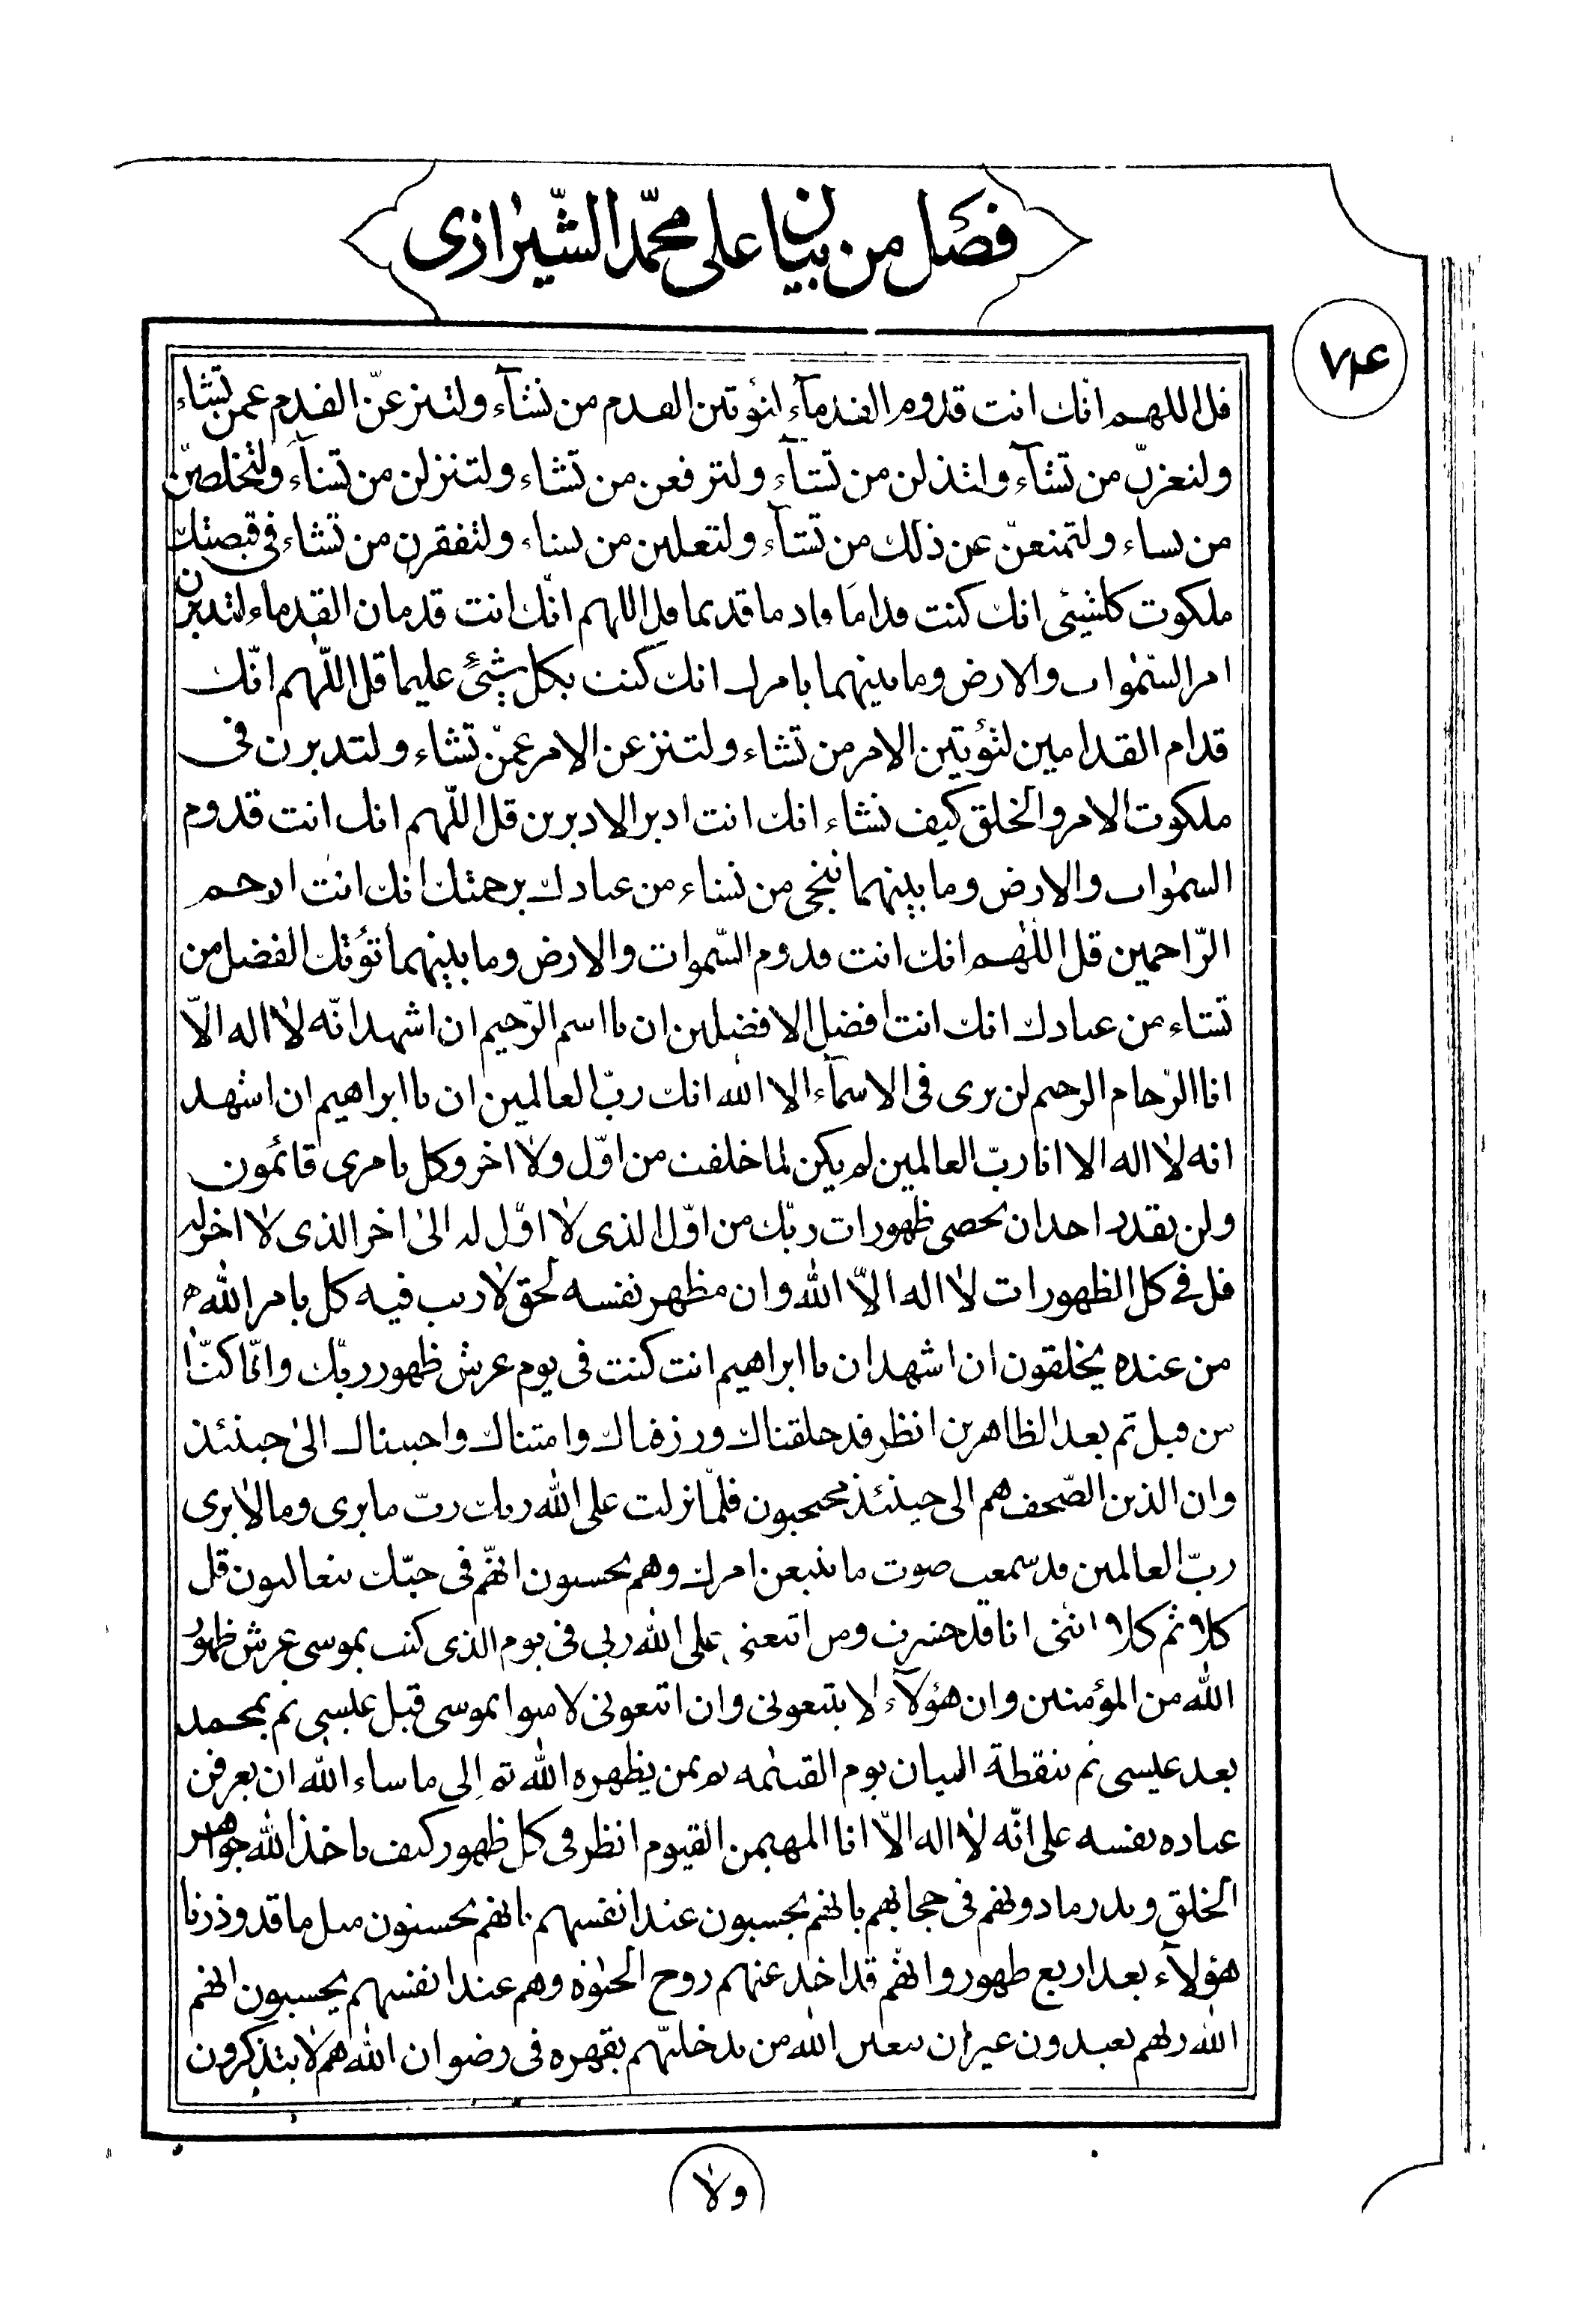 فصل من بيان على محمّد الشّيرازى
٧٤
قل اللهم انك انت قدوم القدماء لتؤتين القدم من تشآء ولتنزعنّ القدم عمن تشاء
ولتعزنّ من تشآء ولتذلن من تشآء ولترفعن من تشاء ولتنزلن من تشآء ولتخلصنّ
من تشاء ولتمنعنّ عن ذلك من تشآء ولتعلين من تشاء ولتفقرن من تشاء فى قبضتك
ملكوت كلشيئى انك كنت قداما قادما قديما قل اللهم انّك انت قدمان القدماء لتدبرن
امر السّمٰوات والارض وما بينهما بامرك انك كنت بكل شئ عليما قل اللّهم انّك
قدام القدامين لتؤتين الامر من تشاء ولتنزعن الامر عمّن تشاء ولتدبرن فى
ملكوت الامر والخلق كيف تشاء انك انت ادبر الادبرين قل اللّهم انك انت قدوم
السمٰوات والارض وما بينهما تنجى من تشاء من عبادك برحمتك انك انت ارحم
الرّاحمين قل اللّهم انك انت قدوم السّموات والارض وما بينهما تؤتك الفضل من
تشاء من عبادك انك انت افضل الافضلين ان يا اسم الرّحيم ان اشهد انّه لا اله الّا
انا الرّحام الرحيم لن يرى فى الاسمآء الا الله انك ربّ العالمين ان يا ابراهيم ان اشهد
انه لا اله الا انا ربّ العالمين لم يكن لما خلقت من اوّل ولا اخر وكل بامرى قائمون
ولن يقدر احد ان يحصى ظهورات ربّك من اوّل الذى لا اوّل له الىٰ اخر الذى لا اخر له
قل فى كل الظهورات لا اله الّا الله وان مظهر نفسه لحق لا ريب فيه كل بامر الله
من عنده يخلقون ان اشهد ان يا ابراهيم انت كنت فى يوم عرش ظهور ربّك وانّا كنّا
من قبل ثم بعد الظاهرين انظر قد خلقناك ورزقناك وامتناك واحييناك الىٰ حينئذ
وان الذين الصّحف هم الى حينئذ محتجبون فلمّا نزلت على الله ربك ربّ ما يرى وما لا يرى
ربّ العالمين قد سمعت صوت ما يتبعن امرك وهم يحسبون انهّم فى حبّك قل
كلا ثم كلا اننى انا قد حشرت ومن اتبعنى على الله ربى فى يوم الذى كنت بموسى عرش ظهور
الله من المؤمنين وان هؤلآء لا يتبعونى وان اتبعونى لامنوا بموسى قبل عيسى ثم بمحمد
بعد عيسى ثم بنقطة البيان يوم القيٰمه ثم بمن يظهره الله ثم الى ما شاء الله ان يعرفن
عباده نفسه على انّه لا اله الّا انا المهيمن القيوم انظر فى كل ظهور كيف ياخذ الله جواهر
الخلق ويذر ما دونهم فى حجابهم بانهم يحسبون عند انفسهم بانهم يحسنون مثل ما قد وذرنا
هؤلآء بعد اربع ظهور وانهّم قد اخذ عنهم روح الحيٰوة وهم عند انفسهم يحسبون انهم
الله ربهم يعبدون غير ان الله من يدخلنّهم بقهره فى رضوان الله هم لا يتذكرون
ولا